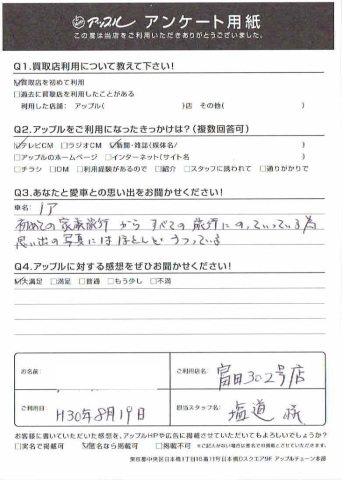 アップル アンケート用紙
この度は当店をご利用いただきありがとうございました。
Q1.買取店利用について教えて下さい!
☑買取店を初めて利用
□過去に買取店を利用したことがある
利用した店舗: アップル( )店 その他( )
Q2.アップルをご利用になったきっかけは?(複数回答可)
☑テレビCM □ラジオCM ☑新聞・雑誌(媒体名/ )
□アップルのホームページ □インターネット(サイト名 )
□チラシ □DM □利用経験があるので □紹介 □スタッフに誘われて □通りがかりで
Q3.あなたと愛車との思い出をお聞かせください!
車名: ノア
初めての家族旅行からすべての旅行にのっていっている為
思い出の写真にはほとんどうつっている
Q4.アップルに対する感想をぜひお聞かせください!
☑大満足 □満足 □普通 □もう少し □不満
お名前:
ご利用店名: 富田302号店
ご利用日 H30年8月19日
担当スタッフ名: 塩道 様
お客様に書いていただいた感想を、アップルHPや広告に掲載させていただいてもよろしいでしょうか?
□実名で掲載可 ☑匿名なら掲載可 □掲載不可
東京都中央区日本橋1丁目16番11号日本橋Dスクエア9F アップルチェーン本部